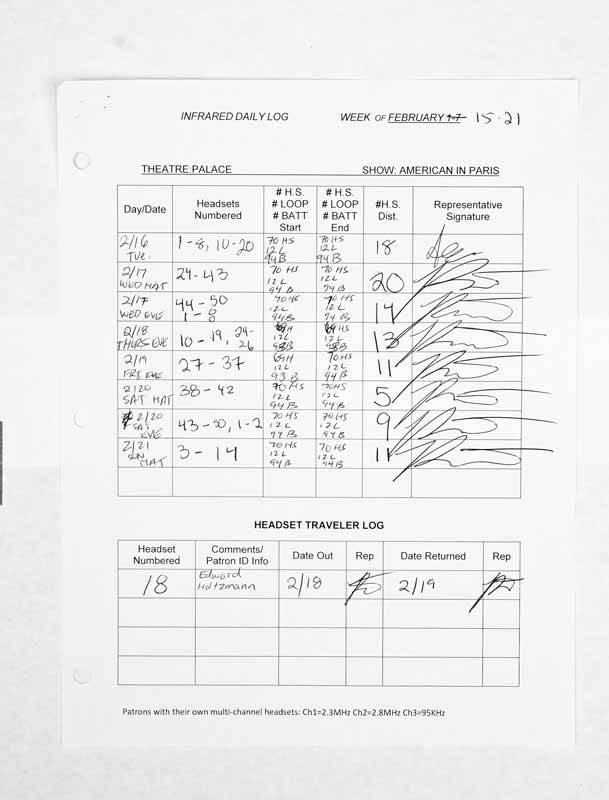 INFRARED DAILY LOG WEEK OF FEBRUARY 1-7 15-21
THEATRE PALACE SHOW: AMERICAN IN PARIS
Day/Date Headsets Numbered # H.S. # LOOP # BATT Start # H.S. # LOOP # BATT End #H.S. Dist. Representative Signature
2/16 TUE. 1-8, 10-20 70 HS 12 L 94 B 70 HS 12 L 94 B 18
2/17 WED MAT 24-43 70 HS 12 L 94 B 70 HS 12 L 94 B 20
2/17 WED EVE 44-50 1-8 70 HS 12 L 94 B 70 HS 12 L 94 B 14
2/18 THURS EVE 10-19, 24-26 69 H 12 L 93 B 69 HS 12 L 93 B 13
2/19 FRI EVE 27-37 69 H 12 L 93 B 70 HS 12 L 94 B 11
2/20 SAT MAT 38-42 70 HS 12 L 94 B 70 HS 12 L 94 B 5
2/20 SAT EVE 43-50, 1-2 70 HS 12 L 94 B 70 HS 12 L 94 B 9
2/21 SUN MAT 3-14 70 HS 12 L 94 B 70 HS 12 L 94 B 11
HEADSET TRAVELER LOG
Headset Numbered Comments/ Patron ID Info Date Out Rep Date Returned Rep
18 Edward Holtzmann 2/18 2/19
Patrons with their own multi-channel headsets: Ch1=2.3MHz Ch2=2.8MHz Ch3=95KHz